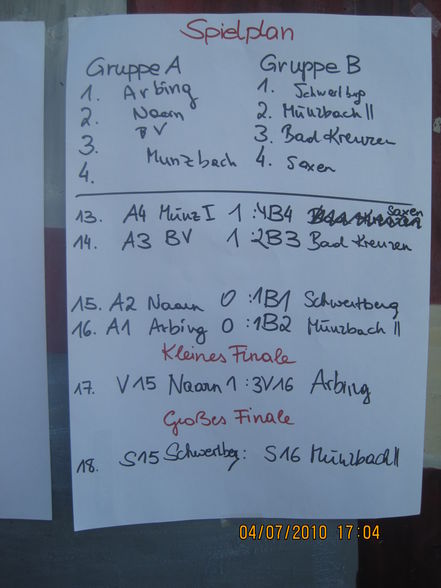 Spielplan
Gruppe A Gruppe B
1. Arbing 1. Schwertbg
2. Naarn 2. Münzbach II
3. BV 3. Bad Kreuzen
4. Munzbach 4. Saxen
13. A4 Münz I 1 : 4 B4 Saxen
14. A3 BV 1 : 2 B3 Bad Kreuzen
15. A2 Naarn 0 : 1 B1 Schwertberg
16. A1 Arbing 0 : 1 B2 Münzbach II
Kleines Finale
17. V15 Naarn 1 : 3 V16 Arbing
Großes Finale
18. S15 Schwertbg : S16 Münzbach II
04/07/2010 17:04